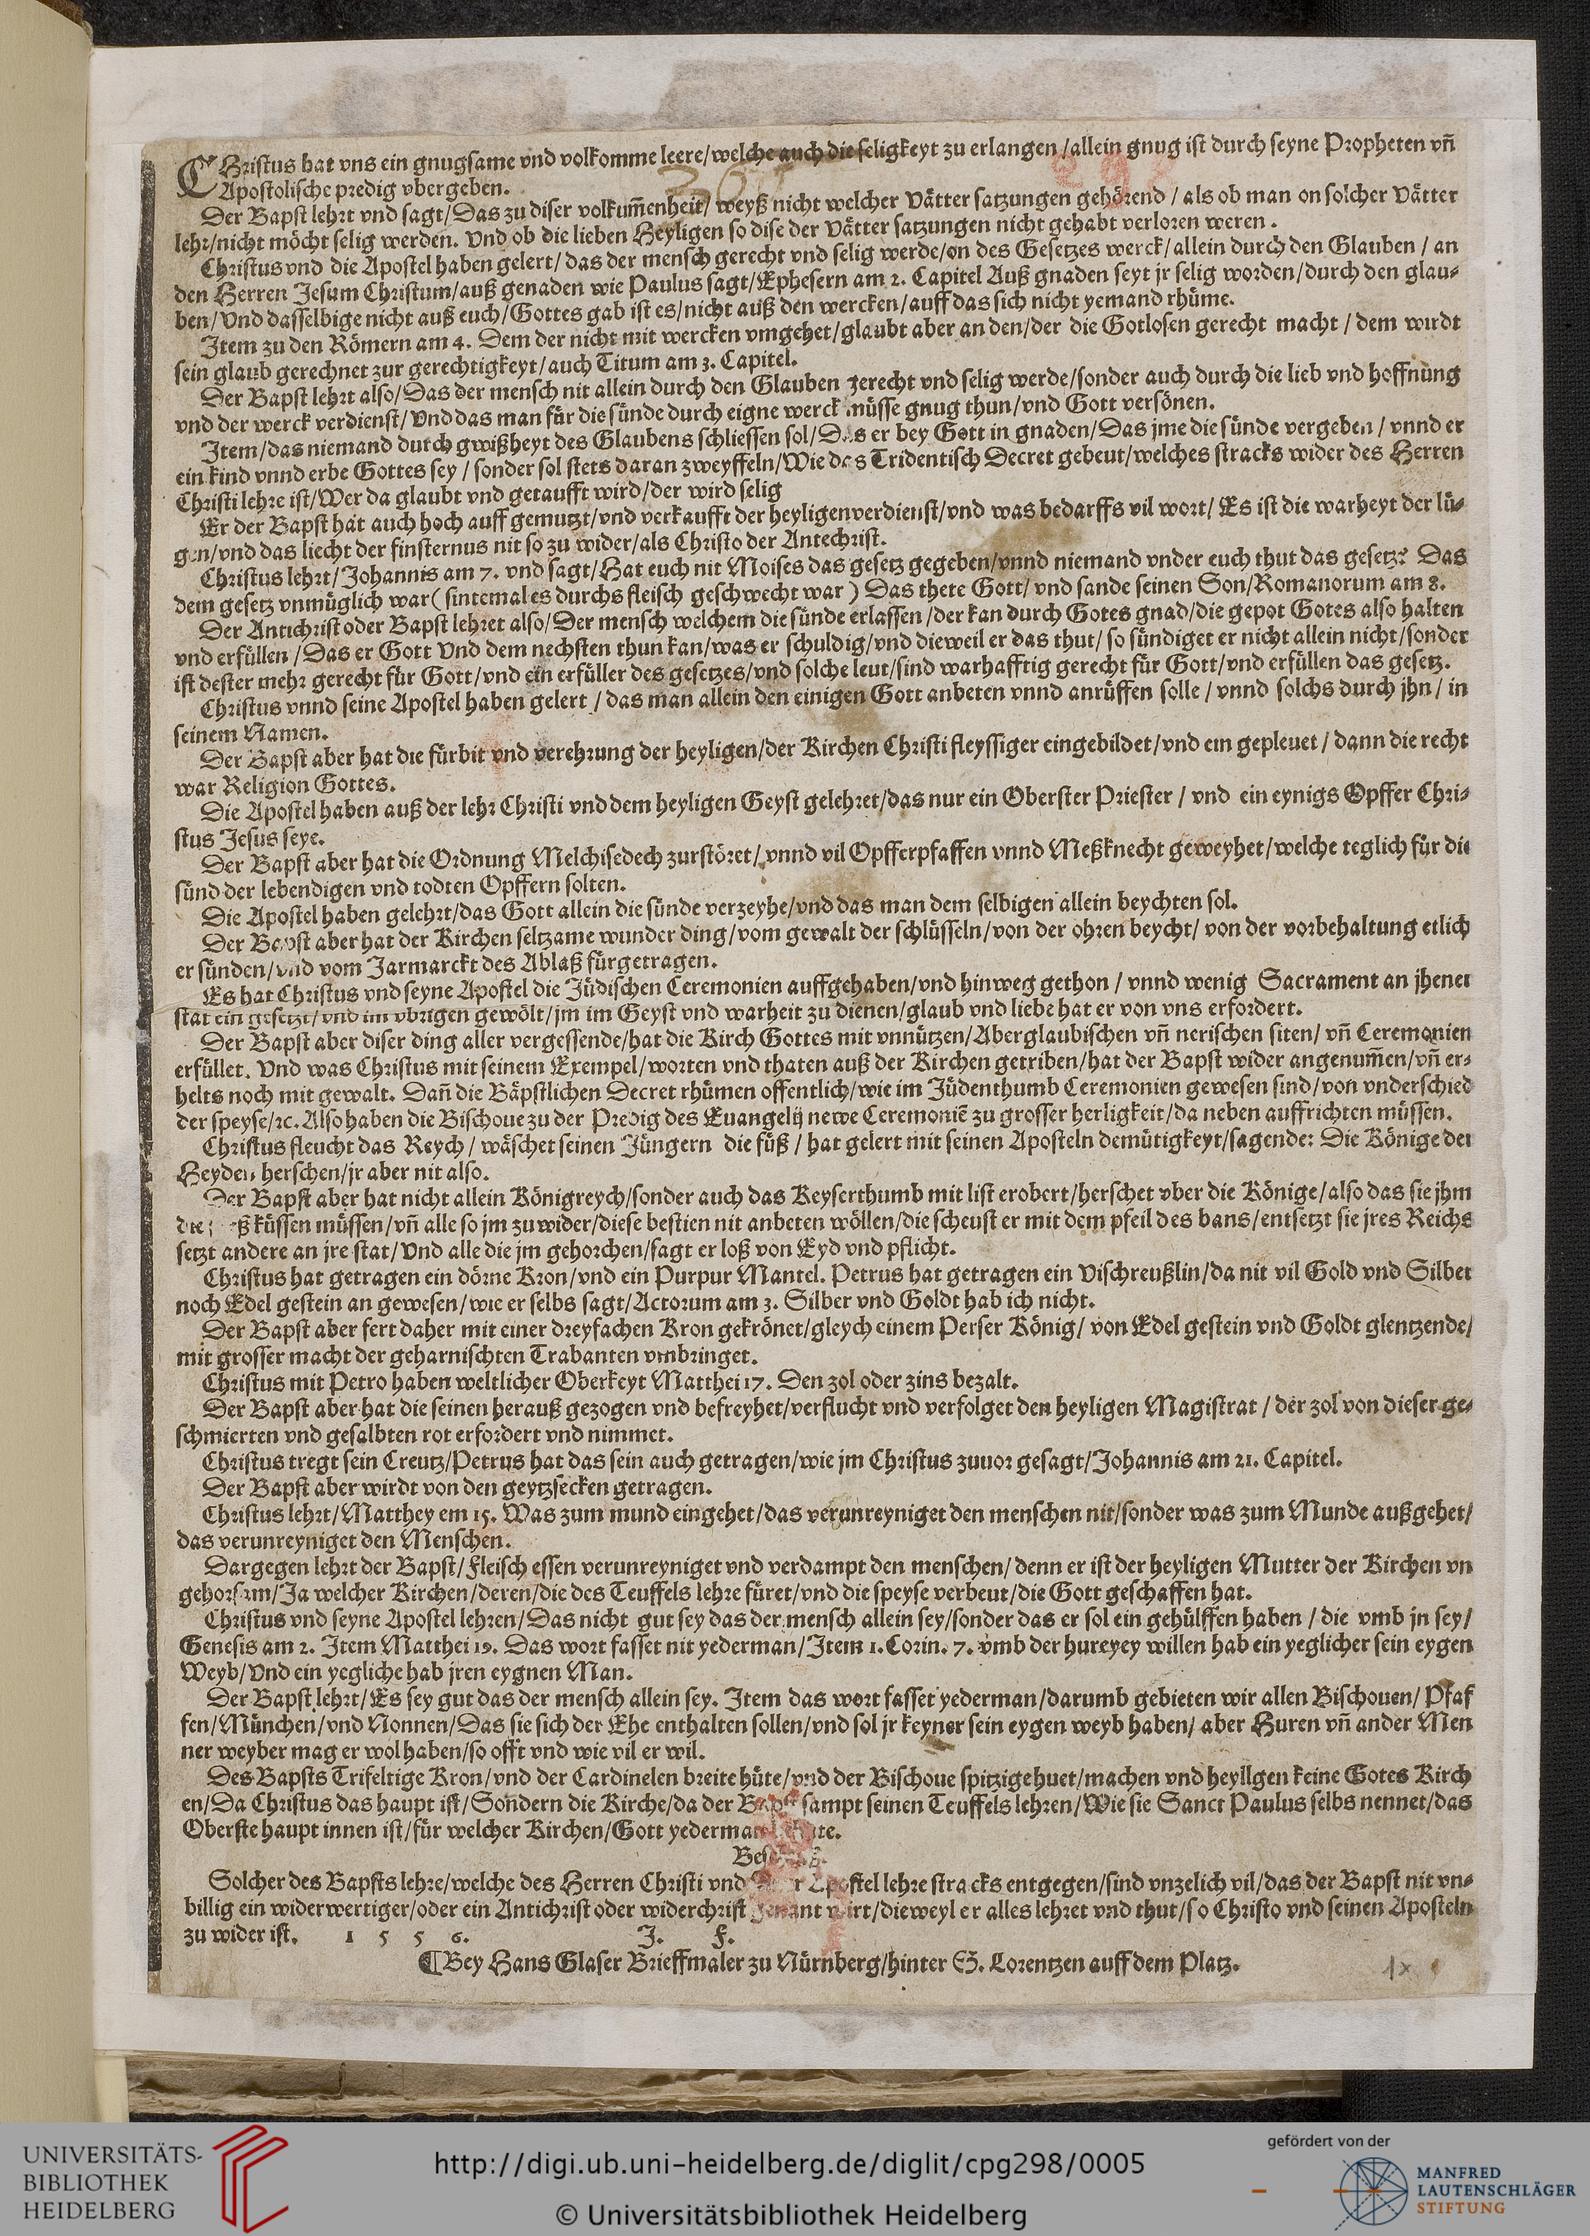 CHristus hat vns ein gnugsame vnd volkomme leere/welche auch die seligkeyt zu erlangen/allein gnug ist durch seyne Propheten vñ
Apostolische predig vbergeben.
Der Bapst lehrt vnd sagt/Das zu diser volkum̃enheit/ weyß nicht welcher Vätter satzungen gehörend / als ob man on solcher Vätter
lehr/nicht möcht selig werden. Vnd ob die lieben Heyligen so dise der Vätter satzungen nicht gehabt verloren weren.
Christus vnd die Apostel haben gelert/das der mensch gerecht vnd selig werde/on des Gesetzes werck/allein durch den Glauben / an
den Herren Jesum Christum/auß genaden wie Paulus sagt/Ephesern am 2. Capitel Auß gnaden seyt jr selig worden/durch den glau-
ben/Vnd dasselbige nicht auß euch/Gottes gab ist es/nicht auß den wercken/auff das sich nicht yemand rhüme.
Item zu den Römern am 4. Dem der nicht mit wercken vmgehet/glaubt aber an den/der die Gotlosen gerecht macht / dem wirdt
sein glaub gerechnet zur gerechtigkeyt/auch Titum am 3. Capitel.
Der Bapst lehrt also/Das der mensch nit allein durch den Glauben gerecht vnd selig werde/sonder auch durch die lieb vnd hoffnung
vnd der werck verdienst/Vnd das man für die sünde durch eigne werck müsse gnug thun/vnd Gott versönen.
Item/das niemand durch gwißheyt des Glaubens schliessen sol/Das er bey Gott in gnaden/Das jme die sünde vergeben / vnnd er
ein kind vnnd erbe Gottes sey / sonder sol stets daran zweyffeln/Wie das Tridentisch Decret gebeut/welches stracks wider des Herren
Christi lehre ist/Wer da glaubt vnd getaufft wird/der wird selig
Er der Bapst hat auch hoch auff gemutzt/vnd verkaufft der heyligen verdienst/vnd was bedarffs vil wort/ Es ist die warheyt der lü-
gen/vnd das liecht der finsternus nit so zu wider/als Christo der Antechrist.
Christus lehrt/Johannis am 7. vnd sagt/Hat euch nit Moises das gesetz gegeben/vnnd niemand vnder euch thut das gesetz? Das
dem gesetz vnmüglich war (sintemal es durchs fleisch geschwecht war) Das thete Gott/ vnd sande seinen Son/Romanorum am 8.
Der Antichrist oder Bapst lehret also/Der mensch welchem die sünde erlassen/der kan durch Gotes gnad/die gepot Gotes also halten
vnd erfüllen /Das er Gott Vnd dem nechsten thun kan/was er schuldig/vnd dieweil er das thut/ so sündiget er nicht allein nicht/sonder
ist dester mehr gerecht für Gott/vnd ein erfüller des gesetzes/vnd solche leut/sind warhafftig gerecht für Gott/vnd erfüllen das gesetz.
Christus vnnd seine Apostel haben gelert / das man allein den einigen Gott anbeten vnnd anrüffen solle / vnnd solchs durch jhn / in
seinem Namen.
Der Bapst aber hat die fürbit vnd verehrung der heyligen/der Kirchen Christi fleyssiger eingebildet/vnd ein gepleuet / dann die recht
war Religion Gottes.
Die Apostel haben auß der lehr Christi vnd dem heyligen Geyst gelehret/das nur ein Oberster Priester / vnd ein eynigs Opffer Chri-
stus Jesus seye.
Der Bapst aber hat die Ordnung Melchisedech zurstöret/ vnnd vil Opfferpfaffen vnnd Meßknecht geweyhet/welche teglich für die
sünd der lebendigen vnd todten Opffern solten.
Die Apostel haben gelehrt/das Gott allein die sünde verzeyhe/vnd das man dem selbigen allein beychten sol.
Der Bapst aber hat der Kirchen seltzame wunder ding/vom gewalt der schlüsseln/von der ohren beycht/ von der vorbehaltung etlich
er sünden/vnd vom Jarmarckt des Ablaß fürgetragen.
Es hat Christus vnd seyne Apostel die Jüdischen Ceremonien auffgehaben/vnd hinweg gethon / vnnd wenig Sacrament an jhener
stat ein gesetzt/ vnd im vbrigen gewölt/jm im Geyst vnd warheit zu dienen/glaub vnd liebe hat er von vns erfordert.
Der Bapst aber diser ding aller vergessende/hat die Kirch Gottes mit vnnützen/Aberglaubischen vñ nerischen siten/ vñ Ceremonien
erfüllet. Vnd was Christus mit seinem Exempel/worten vnd thaten auß der Kirchen getriben/hat der Bapst wider angenum̃en/vñ er-
helts noch mit gewalt. Dañ die Bäpstlichen Decret rhümen offentlich/wie im Jüdenthumb Ceremonien gewesen sind/von vnderschied
der speyse/ꝛc. Also haben die Bischoue zu der Predig des Euangelij newe Ceremoniē zu grosser herligkeit/da neben auffrichten müssen.
Christus fleucht das Reych / wäschet seinen Jüngern die füß / hat gelert mit seinen Aposteln demütigkeyt/sagende: Die Könige der
Heyden herschen/jr aber nit also.
Der Bapst aber hat nicht allein Königreych/sonder auch das Keyserthumb mit list erobert/herschet vber die Könige/also das sie jhm
die ß küssen müssen/vñ alle so jm zu wider/diese bestien nit anbeten wöllen/die scheust er mit dem pfeil des bans/entsetzt sie jres Reichs
setzt andere an jre stat/Vnd alle die jm gehorchen/sagt er loß von Eyd vnd pflicht.
Christus hat getragen ein dörne Kron/vnd ein Purpur Mantel. Petrus hat getragen ein Vischreußlin/da nit vil Gold vnd Silber
noch Edel gestein an gewesen/wie er selbs sagt/Actorum am 3. Silber vnd Goldt hab ich nicht.
Der Bapst aber fert daher mit einer dreyfachen Kron gekrönet/gleych einem Perser König/ von Edel gestein vnd Goldt glentzende/
mit grosser macht der geharnischten Trabanten vmbringet.
Christus mit Petro haben weltlicher Oberkeyt Matthei 17. Den zol oder zins bezalt.
Der Bapst aber hat die seinen herauß gezogen vnd befreyhet/verflucht vnd verfolget den heyligen Magistrat / der zol von dieser ge-
schmierten vnd gesalbten rot erfordert vnd nimmet.
Christus tregt sein Creutz/Petrus hat das sein auch getragen/wie jm Christus zuuor gesagt/Johannis am 21. Capitel.
Der Bapst aber wirdt von den geytzsecken getragen.
Christus lehrt/Matthey em 15. Was zum mund eingehet/das verunreyniget den menschen nit/sonder was zum Munde außgehet/
das verunreyniget den Menschen.
Dargegen lehrt der Bapst/Fleisch essen verunreyniget vnd verdampt den menschen/ denn er ist der heyligen Mutter der Kirchen vn
gehorsam/Ja welcher Kirchen/deren/die des Teuffels lehre füret/vnd die speyse verbeut/die Gott geschaffen hat.
Christus vnd seyne Apostel lehren/Das nicht gut sey das der mensch allein sey/sonder das er sol ein gehülffen haben / die vmb jn sey/
Genesis am 2. Item Matthei 19. Das wort fasset nit yederman/Item 1. Corin. 7. vmb der hureyey willen hab ein yeglicher sein eygen
Weyb/Vnd ein yegliche hab jren eygnen Man.
Der Bapst lehrt/Es sey gut das der mensch allein sey. Item das wort fasset yederman/darumb gebieten wir allen Bischouen/ Pfaf
fen/München/vnd Nonnen/Das sie sich der Ehe enthalten sollen/vnd sol jr keyner sein eygen weyb haben/ aber Huren vñ ander Men
ner weyber mag er wol haben/so offt vnd wie vil er wil.
Des Bapsts Trifeltige Kron/vnd der Cardinelen breite hüte/vnd der Bischoue spitzige huet/machen vnd heyllgen keine Gotes Kirch
en/Da Christus das haupt ist/Sondern die Kirche/da der Bapst sampt seinen Teuffels lehren/Wie sie Sanct Paulus selbs nennet/das
Oberste haupt innen ist/für welcher Kirchen/Gott yederman
Solcher des Bapsts lehre/welche des Herren Christi vnd Apostel lehre stracks entgegen/sind vnzelich vil/das der Bapst nit vn-
billig ein widerwertiger/oder ein Antichrist oder widerchrist genant wirt/dieweyl er alles lehret vnd thut/so Christo vnd seinen Aposteln
zu wider ist. 1 5 5 6. J. F.
¶ Bey Hans Glaser Brieffmaler zu Nürnberg/hinter S. Lorentzen auff dem Platz.
1x
UNIVERSITÄTS-
BIBLIOTHEK
HEIDELBERG
http://digi.ub.uni-heidelberg.de/diglit/cpg298/0005
© Universitätsbibliothek Heidelberg
gefördert von der
MANFRED
LAUTENSCHLÄGER
STIFTUNG